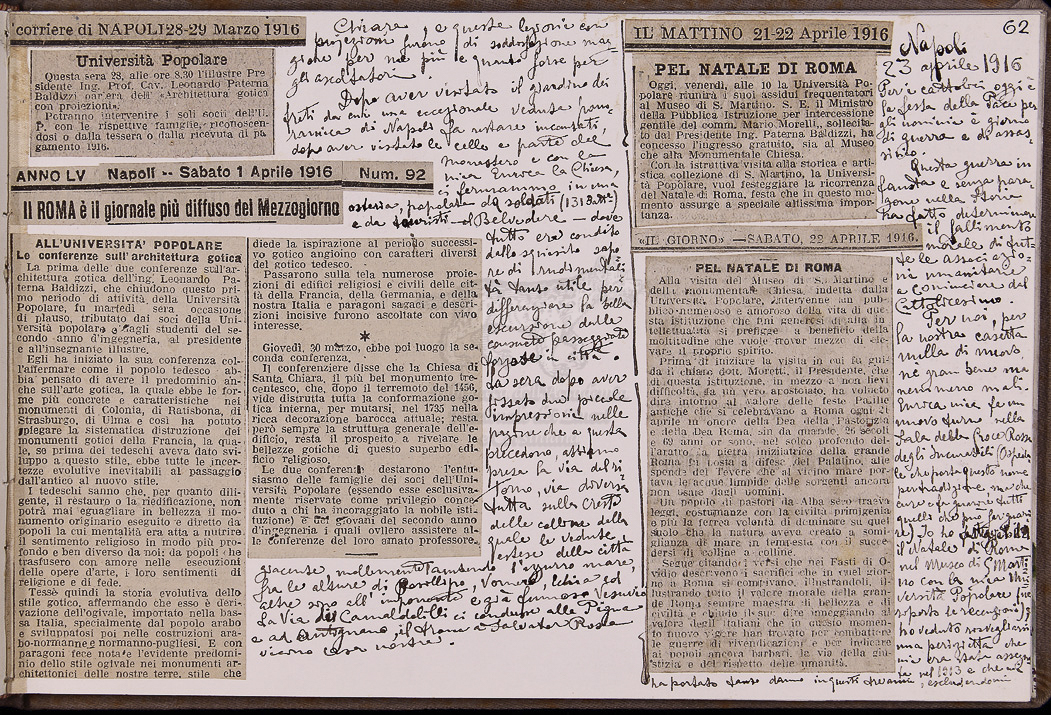 62
corriere di NAPOLI 28-29 Marzo 1916
Università Popolare
Questa sera 28, alle ore 8.30 l'illustre Pre-
sidente Ing. Prof. Cav. Leonardo Paterna
Baldizzi parlerà dell' «Architettura gotica
con proiezioni».
Potranno intervenire i soli soci dell'U.
P. con le rispettive famiglie, riconoscen-
dosi dalla tessera o dalla ricevuta di pa-
gamento 1916.
ANNO LV Napoli -- Sabato 1 Aprile 1916 Num. 92
Il ROMA è il giornale più diffuso del Mezzogiorno
ALL'UNIVERSITA' POPOLARE
Le conferenze sull'architettura gotica
La prima delle due conferenze sull'ar-
chitettura gotica dell'Ing. Leonardo Pa-
terna Baldizzi, che chiudono questo pri-
mo periodo di attività, della Università
Popolare, fu martedì sera occasione
di plauso, tributato dai soci della Uni-
versità popolare e dagli studenti del se-
condo anno d'ingegneria, al presidente
e all'insegnante illustre.
Egli ha iniziato la sua conferenza col-
l'affermare come il popolo tedesco ab-
bia pensato di avere il predominio an-
che sull'arte gotica, la quale ebbe le for-
me più concrete e caratteristiche nei
monumenti di Colonia, di Ratisbona, di
Strasburgo, di Ulma e così ha potuto
spiegare la sistematica distruzione dei
monumenti gotici della Francia, la qua-
le, se prima dei tedeschi aveva dato svi-
luppo a questo stile, ebbe tutte le incer-
tezze evolutive inevitabili al passaggio
dall'antico al nuovo stile.
I tedeschi sanno che, per quanto dili-
gente, il restauro o la riedificazione, non
potrà mai eguagliare in bellezza il mo-
numento originario eseguito e diretto da
popoli la cui mentalità era atta a nutrire
il sentimento religioso in modo più pro-
fondo e ben diverso da noi: da popoli che
trasfusero con amore nelle esecuzioni
delle opere d'arte, i loro sentimenti di
religione e di fede.
Tessè quindi la storia evolutiva dello
stile gotico, affermando che esso è deri-
vazione dell'ogivale, importato nella bas-
sa Italia, specialmente dal popolo arabo
e sviluppatosi poi nelle costruzioni ara-
bo-normanne e normanno-pugliesi. E con
paragoni fece notare l'evidente predomi-
nio dello stile ogivale nei monumenti ar-
chitettonici delle nostre terre, stile che
diede la ispirazione al periodo successi-
vo gotico angioino con caratteri diversi
del gotico tedesco.
Passarono sulla tela numerose proie-
zioni di edifici religiosi e civili delle cit-
tà della Francia, della Germania, e della
nostra Italia e paragoni sagaci e descri-
zioni incisive furono ascoltate con vivo
interesse.
*
Giovedì, 30 marzo, ebbe poi luogo la se-
conda conferenza.
Il conferenziere disse che la Chiesa di
Santa Chiara, il più bel monumento tre-
centesco, che, dopo il terremoto del 1456,
vide distrutta tutta la conformazione go-
tica interna, per mutarsi, nel 1735 nella
ricca decorazione barocca attuale; resta
però sempre la struttura generale dell'e-
dificio, resta il prospetto a rivelare le
bellezze gotiche di questo superbo edi-
ficio religioso.
Le due conferenze destarono l'entu-
siasmo delle famiglie dei soci dell'Uni-
versità Popolare (essendo esse esclusiva-
mente riservate come privilegio conce-
duto a chi ha incoraggiato la nobile isti-
tuzione) e dei giovani del secondo anno
d'ingegneria i quali ovilero assistere al-
le conferenze del loro amato professore.
Chiare, e queste lezioni con
proiezioni furono di soddisfazione mag-
giore per me più e quanto forse per
gli ascoltatori.
Dopo aver visitato il giardino dei
frati da cui una eccezionale veduta pano-
ramica di Napoli fa restare incantati,
dopo aver visitato le celle e parte del
monastero e con la
mia Enrica la Chiesa,
ci fermammo in una
osteria, popolare da soldati
e da touristi - il Belvedere - dove
tutto era condito
dello squisito sapo-
re di
tà tanto utile per
differenziare la bella
escursione dalle
consuete passeggiate
forzate in città.
La sera dopo aver
fissato due piccole
impressioni nelle
pagine che a questa
precedono, abbiamo
presa la via del ri-
torno, via diversa
tutta sulla cresta
delle colline della
quale le vedute
estese della città
giacente mollemente lambendo l'azzurro mare,
fra le alture di Posillipo, Vomero,
La Via dei Camaldolilli ci conduce alla Pigna
e ad Antignano, il tram a Salvator Rosa
vicino casa nostra.
IL MATTINO 21-22 Aprile 1916
PEL NATALE DI ROMA
Oggi, venerdì, alle 10 la Università Po-
polare riunirà i suoi assidui frequentatori
al Museo di S. Martino. S. E. il Ministro
della Pubblica Istruzione per intercessione
gentile del comm. Mario Morelli, sollecita-
to dal Presidente Ing. Paterna Baldizzi, ha
concesso l'ingresso gratuito, sia al Museo
che alla Monumentale Chiesa.
Con la istruttiva visita alla storica e arti-
stica collezione di S. Martino, la Università
Popolare, vuol festeggiare la ricorrenza
del Natale di Roma, festa che in questo mo-
mento assurge a speciale altissima impor-
tanza.
«IL GIORNO» — SABATO, 22 APRILE 1916.
PEL NATALE DI ROMA
Alla visita del Museo di S. Martino
e della monumentale Chiesa, indetta dalla
Università Popolare, intervenne un pub-
blico numeroso e amoroso della vita di que-
sta istituzione che fini generosi di alta in-
tellettualità si prefigge a beneficio della
moltitudine che vuole trovar mezzo di ele-
vare il proprio spirito.
Prima di iniziare la visita in cui fu gui-
da il chiaro dott. Moretti, il Presidente, che
di questa istituzione, in mezzo a non lievi
difficoltà, fa un vero apostolato, ha voluto
dire intorno al valore delle feste Palilie
antiche che si celebravano a Roma ogni 21
aprile in onore della Dea della Pastorizia
e della Dea Roma, sin da quando, 26 secoli
e 69 anni or sono, nel solco profondo del-
l'aratro, la pietra iniziatrice della grande
Roma fu posta a difesa del Palatino, alle
spondi del Tevere che al vicino mare por-
tava le acque limpide delle sorgenti ancora
non usate dagli uomini.
Un popolo di pastori da Alba seco traeva
oggi, costumanze con la civiltà primigenia
e più la ferrea volontà di dominare su quel
suolo che la natura aveva creato a somi-
glianza di mare in tempesta con il succe-
dersi di colline a colline.
Segue citando i versi che nei Fasti di O-
vidio descrivono i sacrifici che in quel gior-
no a Roma si compivano, illustrandoli, il-
lustrando tutto il valore morale della gran-
de Roma sempre maestra di bellezza e di
civiltà e chiude il suo dire inneggiando al
valore degli italiani che in questo momen-
to nuovo vigore han trovato per combattere
le guerre di rivendicazioni e per indicare
ai popoli ancora barbari, la via della giu-
stizia e del rispetto delle umanità.
Napoli
23 aprile 1916
Per i cattolici, oggi è
la festa della Pace per
gli uomini è giorno
di guerra e di assas-
sinio.
Questa guerra in-
fausta e senza para-
gone nella Storia
ha fatto determinare
il fallimento
morale di tut-
te le associazio-
ni umanitarie
a cominciare del
Cattolicesimo.
Per noi, per
la nostra casetta
nulla di nuovo
né gran bene ma
nemmeno male.
Enrica mia fa un
nuovo turno nella
Sala della Croce Rossa
degli Incurabili
Io ho
il Natale di Roma
nel Museo di S. Marti-
no con la mia Uni-
versità Popolare
ho veduto
una
mi era stata assegna-
ta nel 1913 e che mi
ha portato tanto danno in questi tre anni, escludendomi